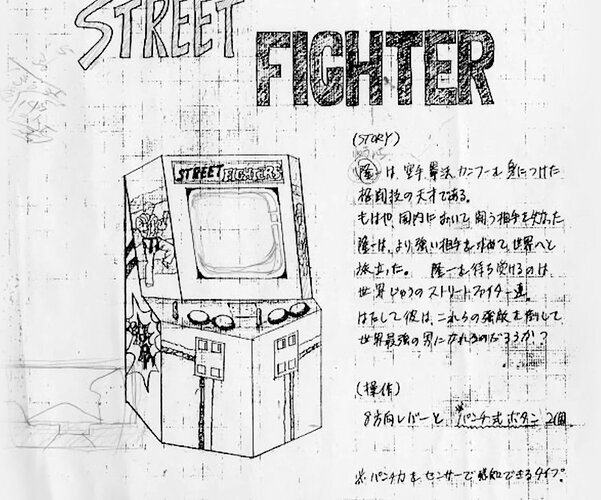 STREET
FIGHTER
STREET FIGHTERS
(STORY)
隆一は 空手 拳法 カンフーを身につけた
格闘技の天才である。
もはや、国内において、闘う相手を失なった
隆一は、より強い相手を求めて、世界へと
旅立った。 隆一を待ち受けるのは
世界じゅうの ストリートファイター達。
はたして彼は、これらの強敵を倒して
世界最強の男になれるのだろうか?
(操作)
8方向レバーと ※パンチ式ボタン 2個
※パンチ力をセンサーで感知できるタイプ。